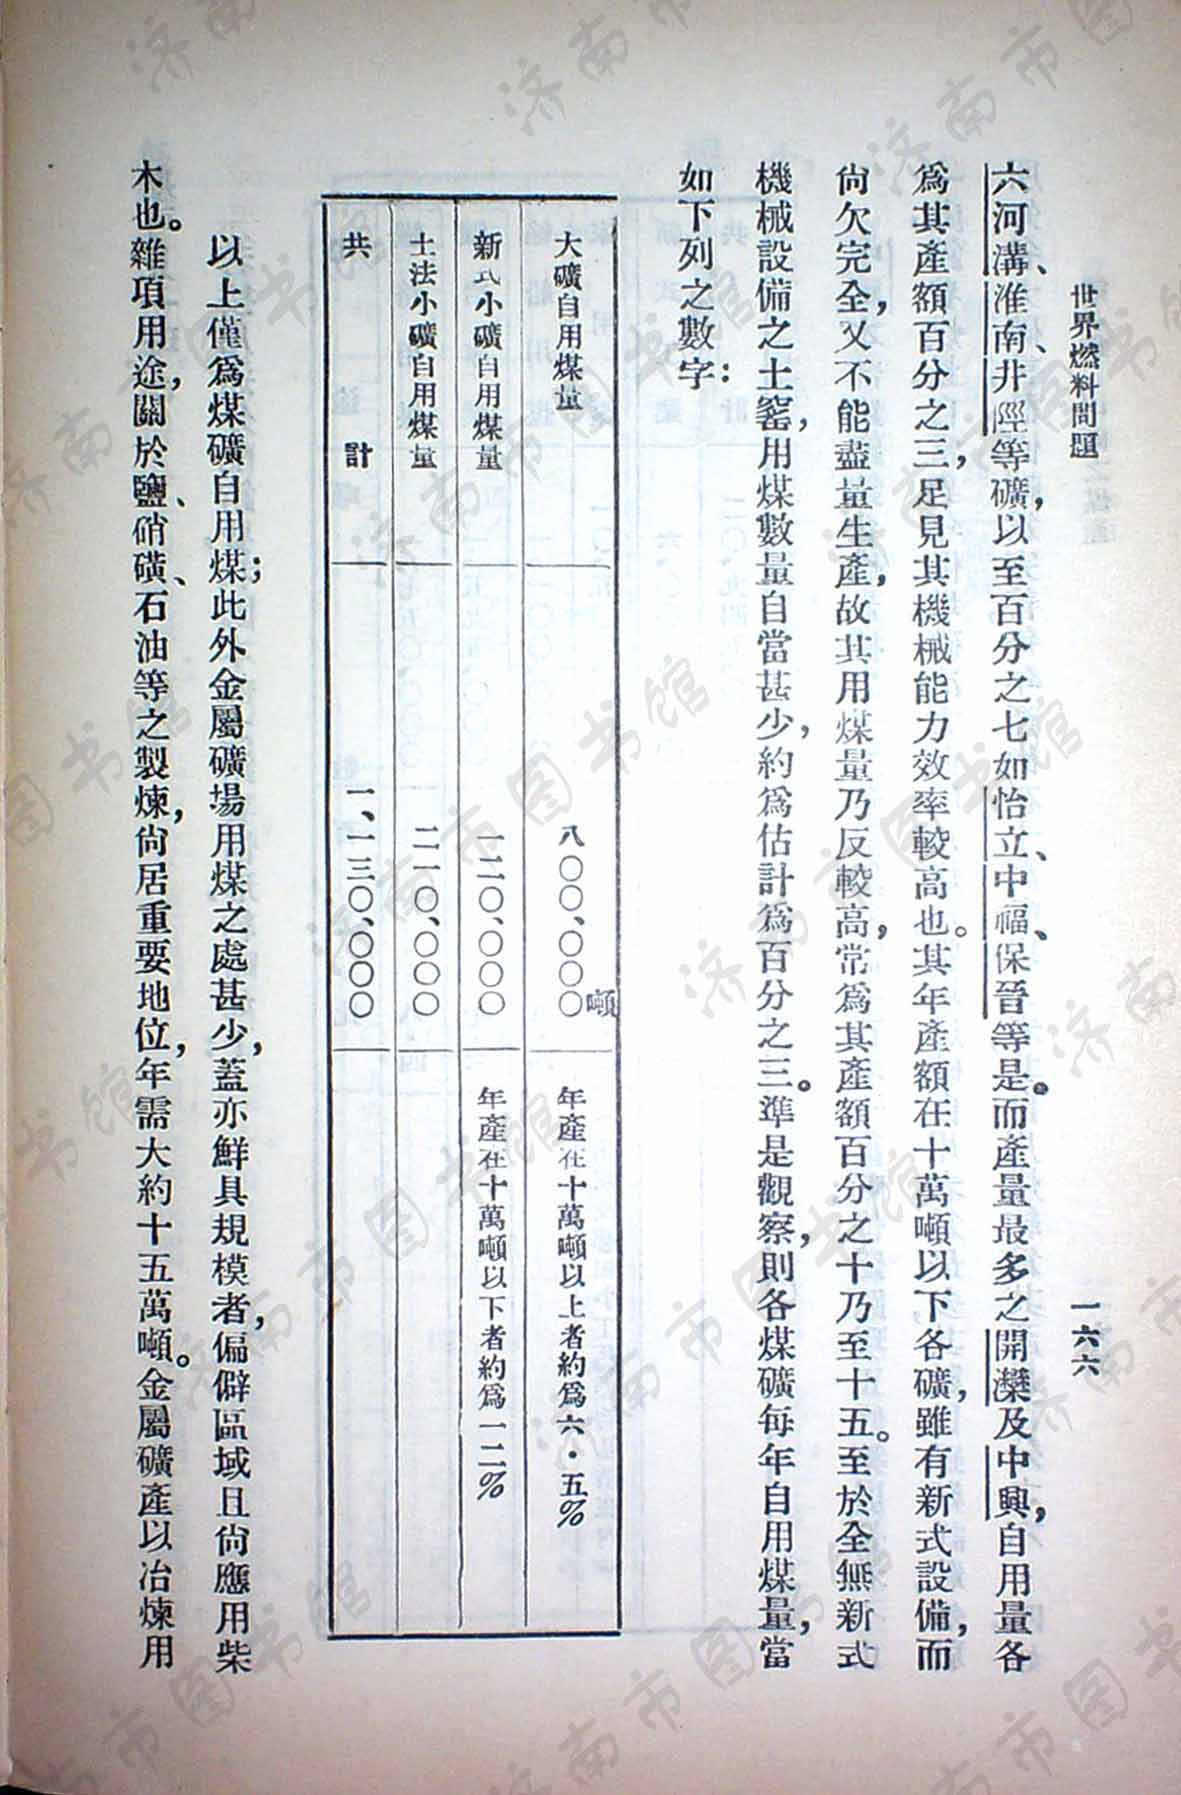 世界燃料問題
一六六
六河溝、淮南、井陘等礦，以至百分之七如怡立、中福、保晉等是。而產量最多之開灤及中興，自用量各
爲其產額百分之三，足見其機械能力效率較高也。其年產額在十萬噸以下各礦，雖有新式設備，而
尙欠完全，又不能盡量生產，故其用煤量乃反較高，常爲其產額百分之十乃至十五。至於全無新式
機械設備之土窰，用煤數量自當甚少，約爲估計爲百分之三。準是觀察，則各煤礦每年自用煤量，當
如下列之數字：
大礦自用煤量 八〇〇、〇〇〇噸 年產在十萬噸以上者約爲六·五%
新式小礦自用煤量 一二〇、〇〇〇 年產在十萬噸以下者約爲一二%
土法小礦自用煤量 二一〇、〇〇〇
共計 一、一三〇、〇〇〇
以上僅爲煤礦自用煤；此外金屬礦場用煤之處甚少，蓋亦鮮具規模者，偏僻區域且尙應用柴
木也。雜項用途，關於鹽、硝磺、石油等之製煉，尙居重要地位，年需大約十五萬噸。金屬礦產以冶煉用
济南市图书馆